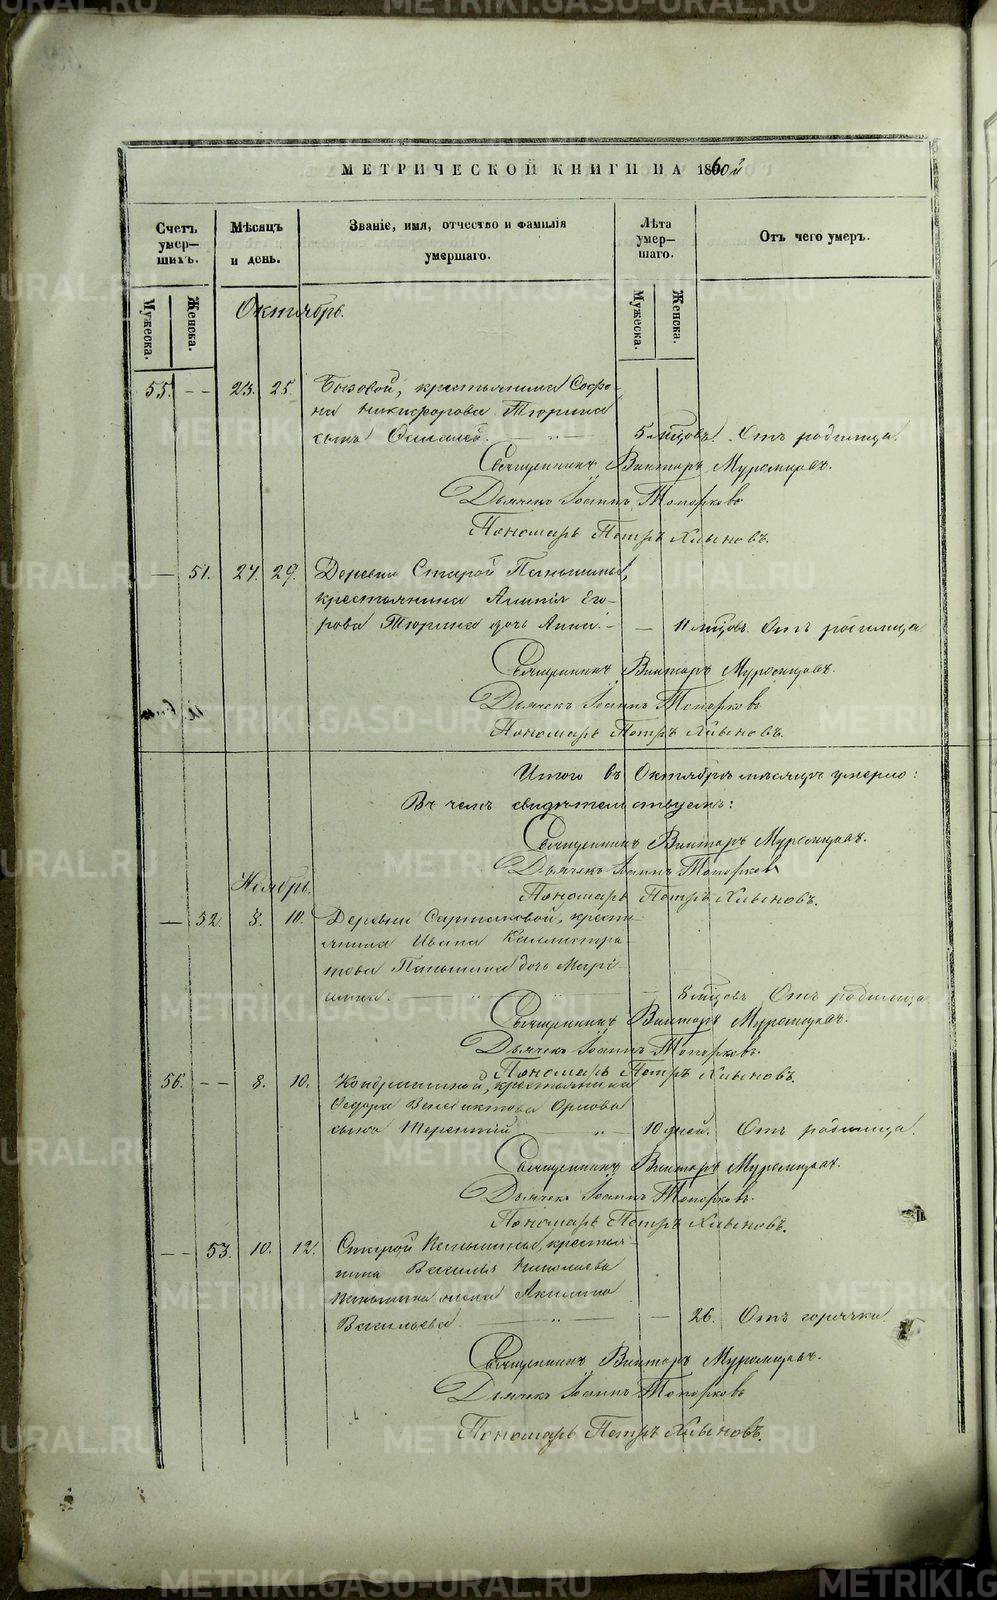 МЕТРИЧЕСКОЙ КНИГИ НА 1860й
Счетъ умер-шихъ.
Мѣсяцъ и день.
Званіе, имя, отчество и фамилія умершаго.
Лѣта умер-шаго.
Отъ чего умеръ.
Мужеска. Женска. Мужеска. Женска.
Октябрь.
55. — — 23. 25. крестьянина Софо-
на Никифорова Тюрина
сынъ 5 мцовъ. Отъ родимца.
Священникъ Викторъ Муромцовъ.
Дьячекъ Іоаннъ Топорковъ
Пономарь Петръ Хлыновъ.
— 51. 27. 29. Деревни Старой Паньшины,
крестьянина Его-
рова Тюрина дочь Анна. — 11 мцовъ. Отъ родимца
Священникъ Викторъ Муромцовъ.
Дьячекъ Іоаннъ Топорковъ
Пономарь Петръ Хлыновъ.
Итого въ Октябрѣ мѣсяцѣ умерло:
Въ чемъ свидѣтельствуемъ:
Священникъ Викторъ Муромцовъ.
Дьячекъ Іоаннъ Топорковъ
Пономарь Петръ Хлыновъ.
Ноябрь.
— 52. 8. 10. Деревни кресть-
янина Ивана Каллистра-
това Паньшина дочь Марі-
амна. — 8 мцовъ Отъ родимца
Священникъ Викторъ Муромцовъ.
Дьячекъ Іоаннъ Топорковъ.
Пономарь Петръ Хлыновъ.
56. — — 8. 10. крестьянина
Федора Венедиктова Орлова
сынъ Терентій „ — 10 дней. Отъ родимца.
Священникъ Викторъ Муромцовъ.
Дьячекъ Іоаннъ Топорковъ.
Пономарь Петръ Хлыновъ.
— — 53. 10. 12. Старой Паньшины, крестья-
нина Василья Николаева
Паньшина жена Акилина
Васильева. „ — 26. Отъ горячки.
Священникъ Викторъ Муромцовъ.
Дьячекъ Іоаннъ Топорковъ
Пономарь Петръ Хлыновъ.
METRIKI.GASO-URAL.RU